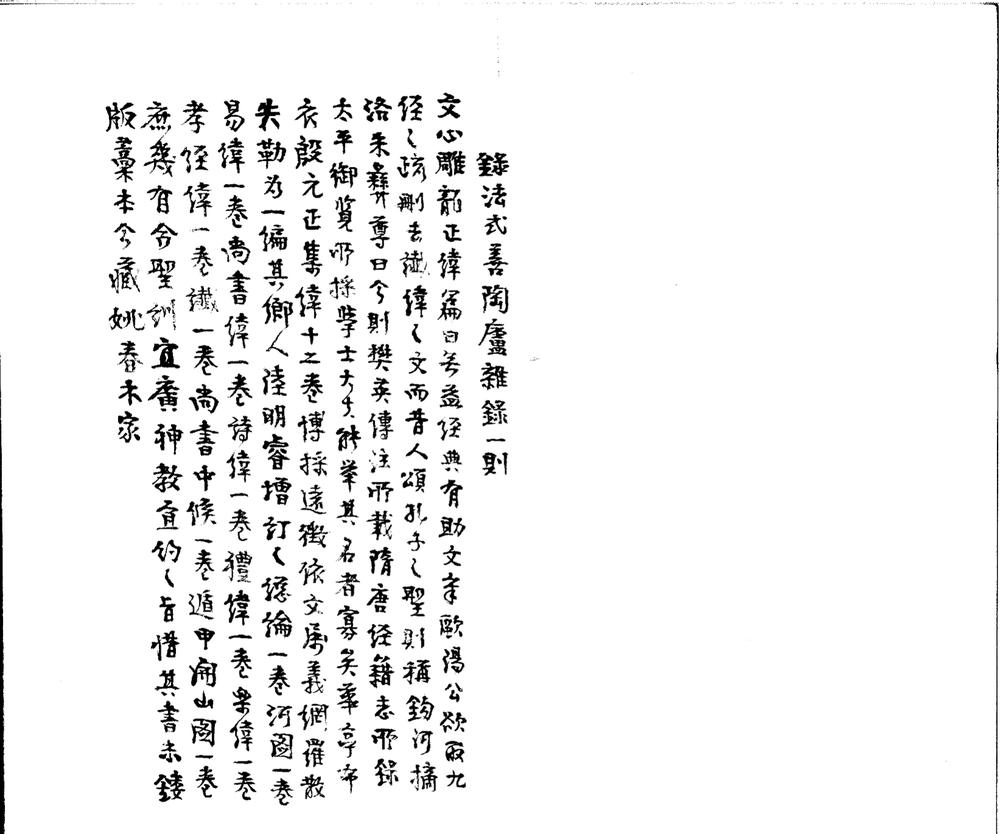 錄法式善陶廬雜錄一則
文心雕龍正緯篇曰無益經典有助文章歐陽公欲取九
經之疏刪去讖緯之文而昔人頌孔子之聖則稱鉤河摘
洛朱彝尊曰今則樊英傳注所載隋唐經籍志所錄
太平御覽所採學士大夫能舉其名者寡矣華亭布
衣殷元正集緯十二卷博採遠徵依文屬義網羅散
失勒為一編其鄉人陸明睿增訂之總論一卷河圖一卷
易緯一卷尚書緯一卷詩緯一卷禮緯一卷樂緯一卷
孝經緯一卷讖一卷尚書中候一卷遁甲開山圖一卷
庶幾有合聖訓宜廣神教宜約之旨惜其書未鏤
版藁本今藏姚春木家